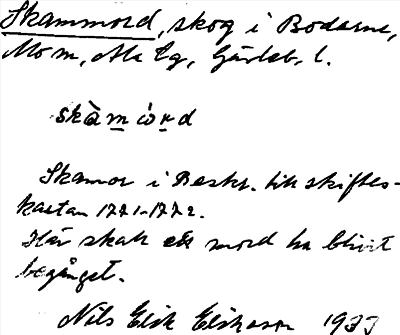 Skammord, skog i Boderne,
Mo m, Ale Eg, Gävleb. l.
skàmơrd
Skamor i Beskr. till skiftes-
kartan 1771-1772.
Här skall ett mord ha blivit
begånget.
Nils Erik Eliasson 1933